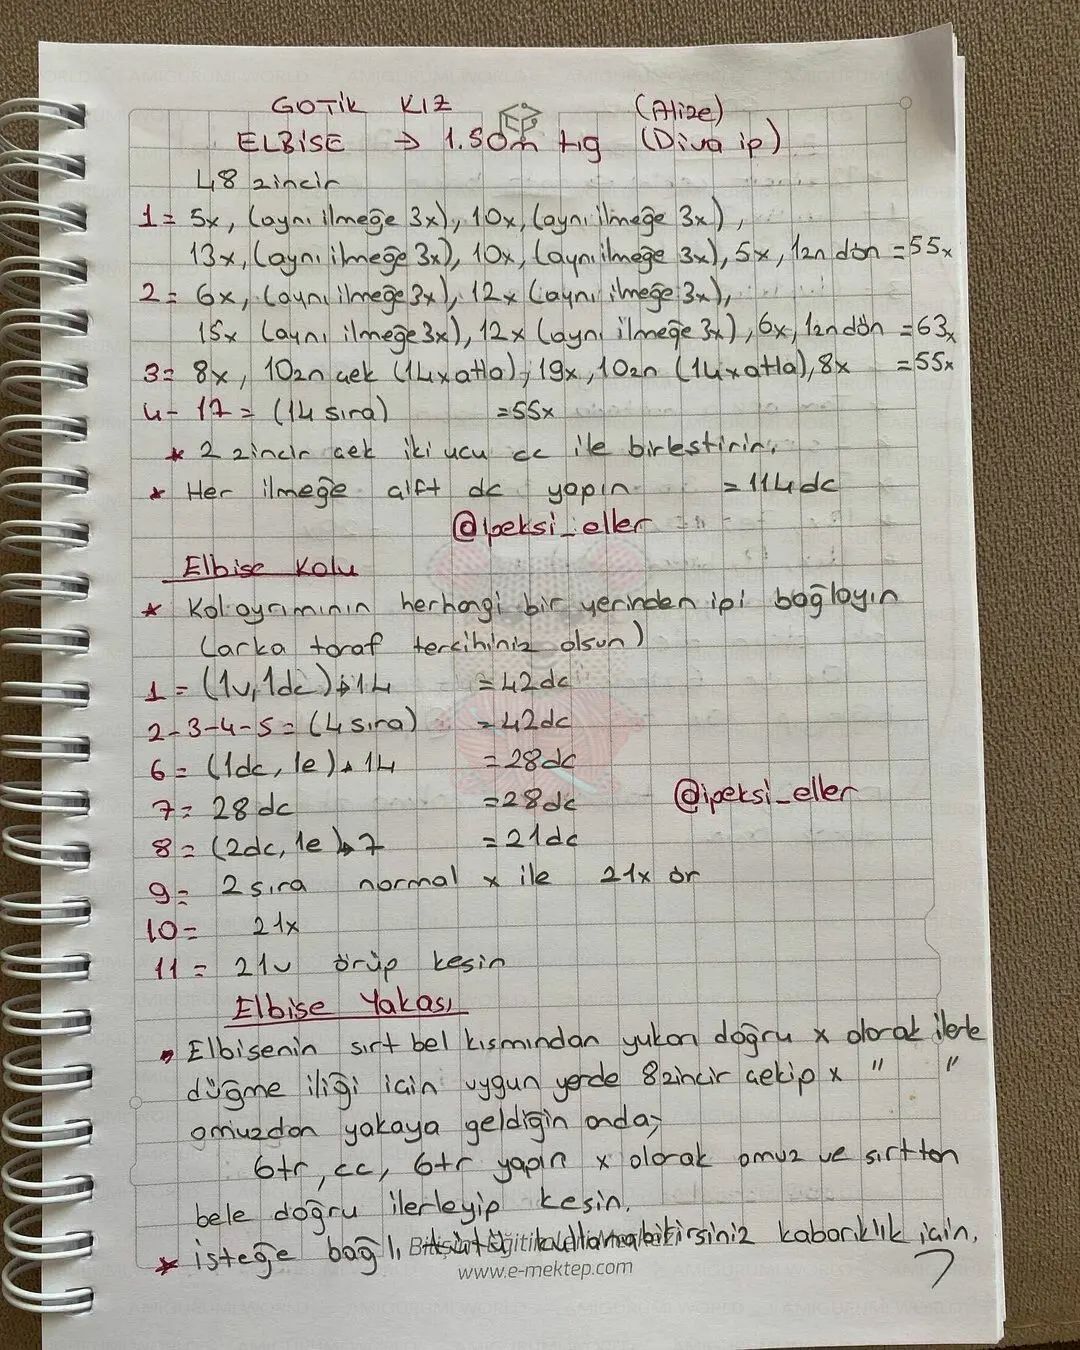 GOTİK KIZ (Alize)
ELBİSE → 1.50m tığ (Diva ip)
48 zincir
1= 5x, (aynı ilmeğe 3x), 10x, (aynı ilmeğe 3x),
13x, (aynı ilmeğe 3x), 10x, (aynı ilmeğe 3x), 5x, 1zn dön =55x
2= 6x, (aynı ilmeğe 3x), 12x (aynı ilmeğe 3x),
15x (aynı ilmeğe 3x), 12x (aynı ilmeğe 3x), 6x, 1zn dön =63x
3= 8x, 10zn çek (14x atla), 19x, 10zn (14x atla), 8x =55x
4- 17= (14 sıra) =55x
* 2 zincir çek iki ucu cc ile birleştirin.
* Her ilmeğe çift dc yapın =114dc
@ipeksi_eller
Elbise Kolu
* Kol ayrımının herhangi bir yerinden ipi bağlayın
(arka taraf tercihiniz olsun)
1= (1v,1dc)*14 =42dc
2-3-4-5= (4 sıra) =42dc
6= (1dc, 1e)*14 =28dc
7= 28dc =28dc
@ipeksi_eller
8= (2dc, 1e)*7 =21dc
9= 2 sıra normal x ile 21x ör
10= 21x
11= 21v örüp kesin
Elbise Yakası
* Elbisenin sırt bel kısmından yukarı doğru x olarak ilerle
düğme iliği için uygun yerde 8zincir çekip x " "
omuzdan yakaya geldiğin anda;
6tr, cc, 6tr yapın x olarak omuz ve sırttan
bele doğru ilerleyip kesin.
* isteğe bağlı kullanabilirsiniz kabarıklık için.
www.e-mektep.com